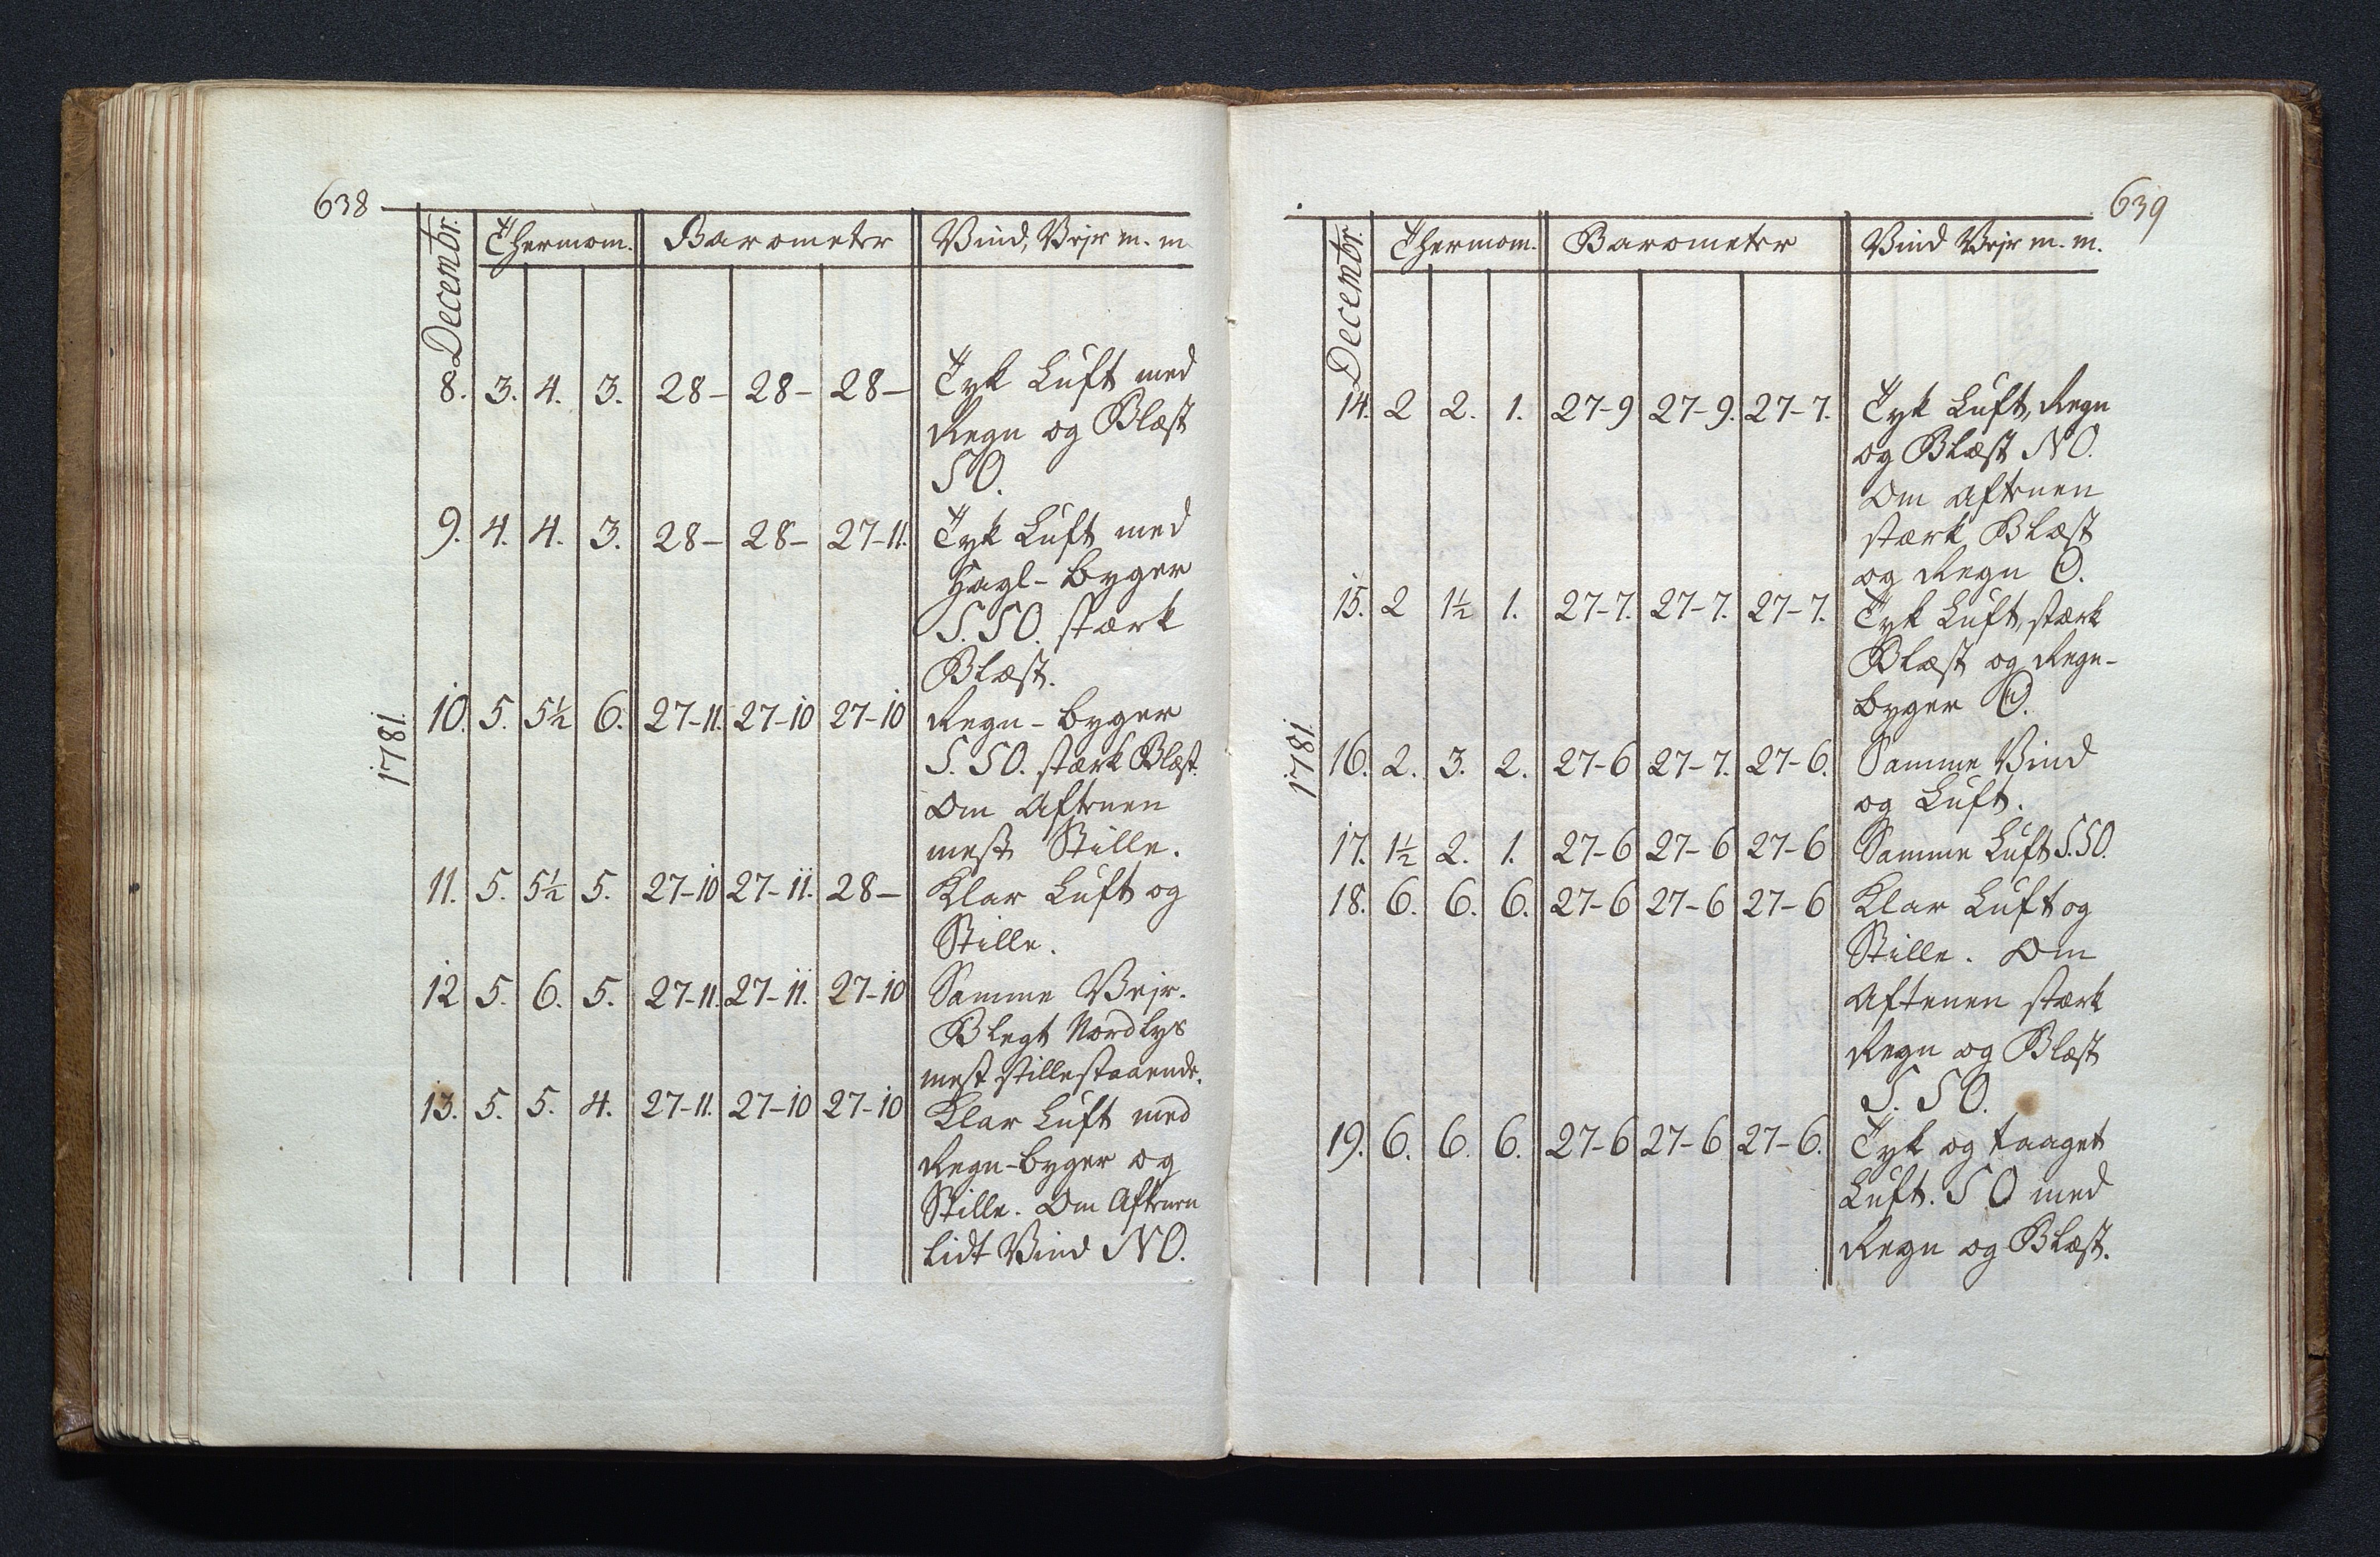 638
Decembr. Thermom. Barometer Vind, Vejr m. m
8. 3. 4. 3. 28– 28– 28– Tyk Luft med
Regn og Blæst
SO.
9. 4. 4. 3. 28– 28– 27–11. Tyk Luft med
Hagl-byger
S. SO. stærk
Blæst.
1781.
10. 5. 5½ 6. 27–11. 27–10 27–10 Regn-byger
S. SO. stærk Blæst.
Om Aftenen
mest Stille.
11. 5. 5½ 5. 27–10 27–11. 28– Klar Luft og
Stille.
12 5. 6. 5. 27–11. 27–11. 27–10 Samme Vejr.
Blegt Nordlys
mest stillestaaende.
13. 5. 5. 4. 27–11. 27–10 27–10 Klar Luft med
Regn-byger og
Stille. Om Aftenen
lidt Vind NO.
639
Decembr. Thermom. Barometer Vind Vejr m. m.
14. 2 2. 1. 27–9 27–9. 27–7. Tyk Luft, Regn
og Blæst NO.
Om Aftenen
stærk Blæst
og Regn O.
15. 2 1½ 1. 27–7. 27–7. 27–7. Tyk Luft, stærk
Blæst og Regn-
byger O.
1781.
16. 2. 3. 2. 27–6 27–7. 27–6. Samme Vind
og Luft.
17. 1½ 2. 1. 27–6 27–6 27–6 Samme Luft S. SO.
18. 6. 6. 6. 27–6 27–6 27–6 Klar Luft og
Stille. Om
Aftenen stærk
Regn og Blæst
S. SO.
19. 6. 6. 6. 27–6 27–6 27–6. Tyk og taaget
Luft. SO med
Regn og Blæst.